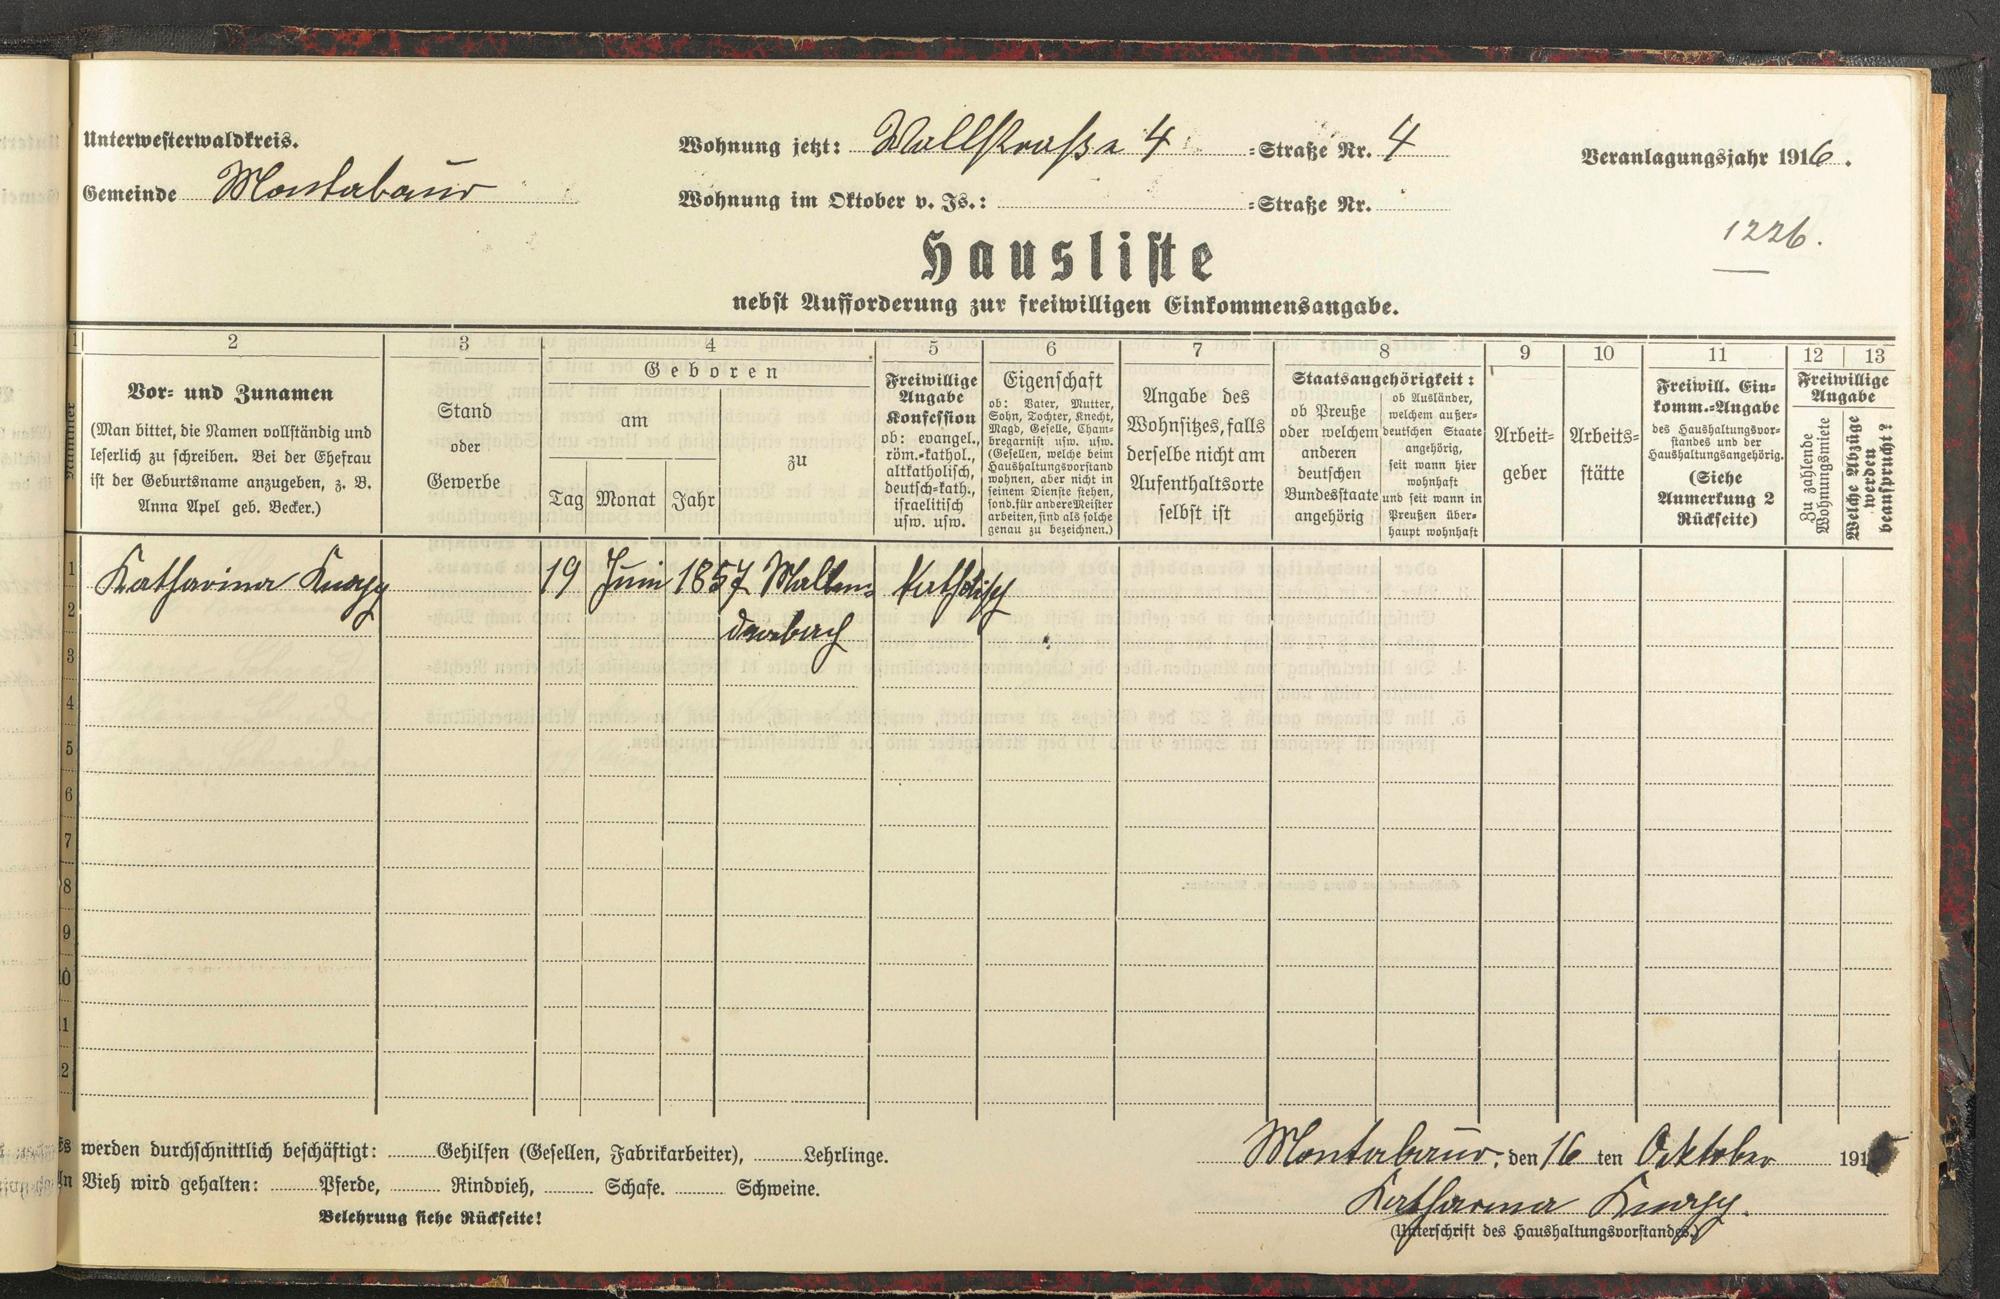 Unterwesterwaldkreis.
Gemeinde Montabaur
Wohnung jetzt: Wallstraße 4 =Straße Nr. 4
Wohnung im Oktober v. Js.: =Straße Nr.
Veranlagungsjahr 1916.
1226.
Hausliste
nebst Aufforderung zur freiwilligen Einkommensangabe.
1 2 3 4 5 6 7 8 9 10 11 12 13
Nummer
Vor- und Zunamen
(Man bittet, die Namen vollständig und
leserlich zu schreiben. Bei der Ehefrau
ist der Geburtsname anzugeben, z. B.
Anna Apel geb. Becker.)
Stand
oder
Gewerbe
Geboren
am
Tag Monat Jahr
zu
Freiwillige
Angabe
Konfession
ob: evangel.,
röm.-kathol.,
altkatholisch,
deutsch-kath.,
israelitisch
usw. usw.
Eigenschaft
ob: Vater, Mutter,
Sohn, Tochter, Knecht,
Magd, Geselle, Cham-
bregarnist usw. usw.
(Gesellen, welche beim
Haushaltungsvorstand
wohnen, aber nicht in
seinem Dienste stehen,
sond. für andere Meister
arbeiten, sind als solche
genau zu bezeichnen.)
Angabe des
Wohnsitzes, falls
derselbe nicht am
Aufenthaltsorte
selbst ist
Staatsangehörigkeit:
ob Preuße
oder welchem
anderen
deutschen
Bundesstaate
angehörig
ob Ausländer,
welchem außer-
deutschen Staate
angehörig,
seit wann hier
wohnhaft
und seit wann in
Preußen über-
haupt wohnhaft
Arbeit-
geber
Arbeits-
stätte
Freiwill. Ein-
komm.-Angabe
des Haushaltungsvor-
standes und der
Haushaltungsangehörig.
(Siehe
Anmerkung 2
Rückseite)
Freiwillige
Angabe
Zu zahlende
Wohnungsmiete
Welche Abzüge
werden
beansprucht?
1 Katharina 19 Juni 1857 Mallen= katholisch
2 darbach
3
4
5
6
7
8
9
10
11
12
Es werden durchschnittlich beschäftigt: Gehilfen (Gesellen, Fabrikarbeiter), Lehrlinge.
An Vieh wird gehalten: Pferde, Rindvieh, Schafe. Schweine.
Belehrung siehe Rückseite!
Montabaur, den 16 ten Oktober 191
Katharina
(Unterschrift des Haushaltungsvorstandes.)